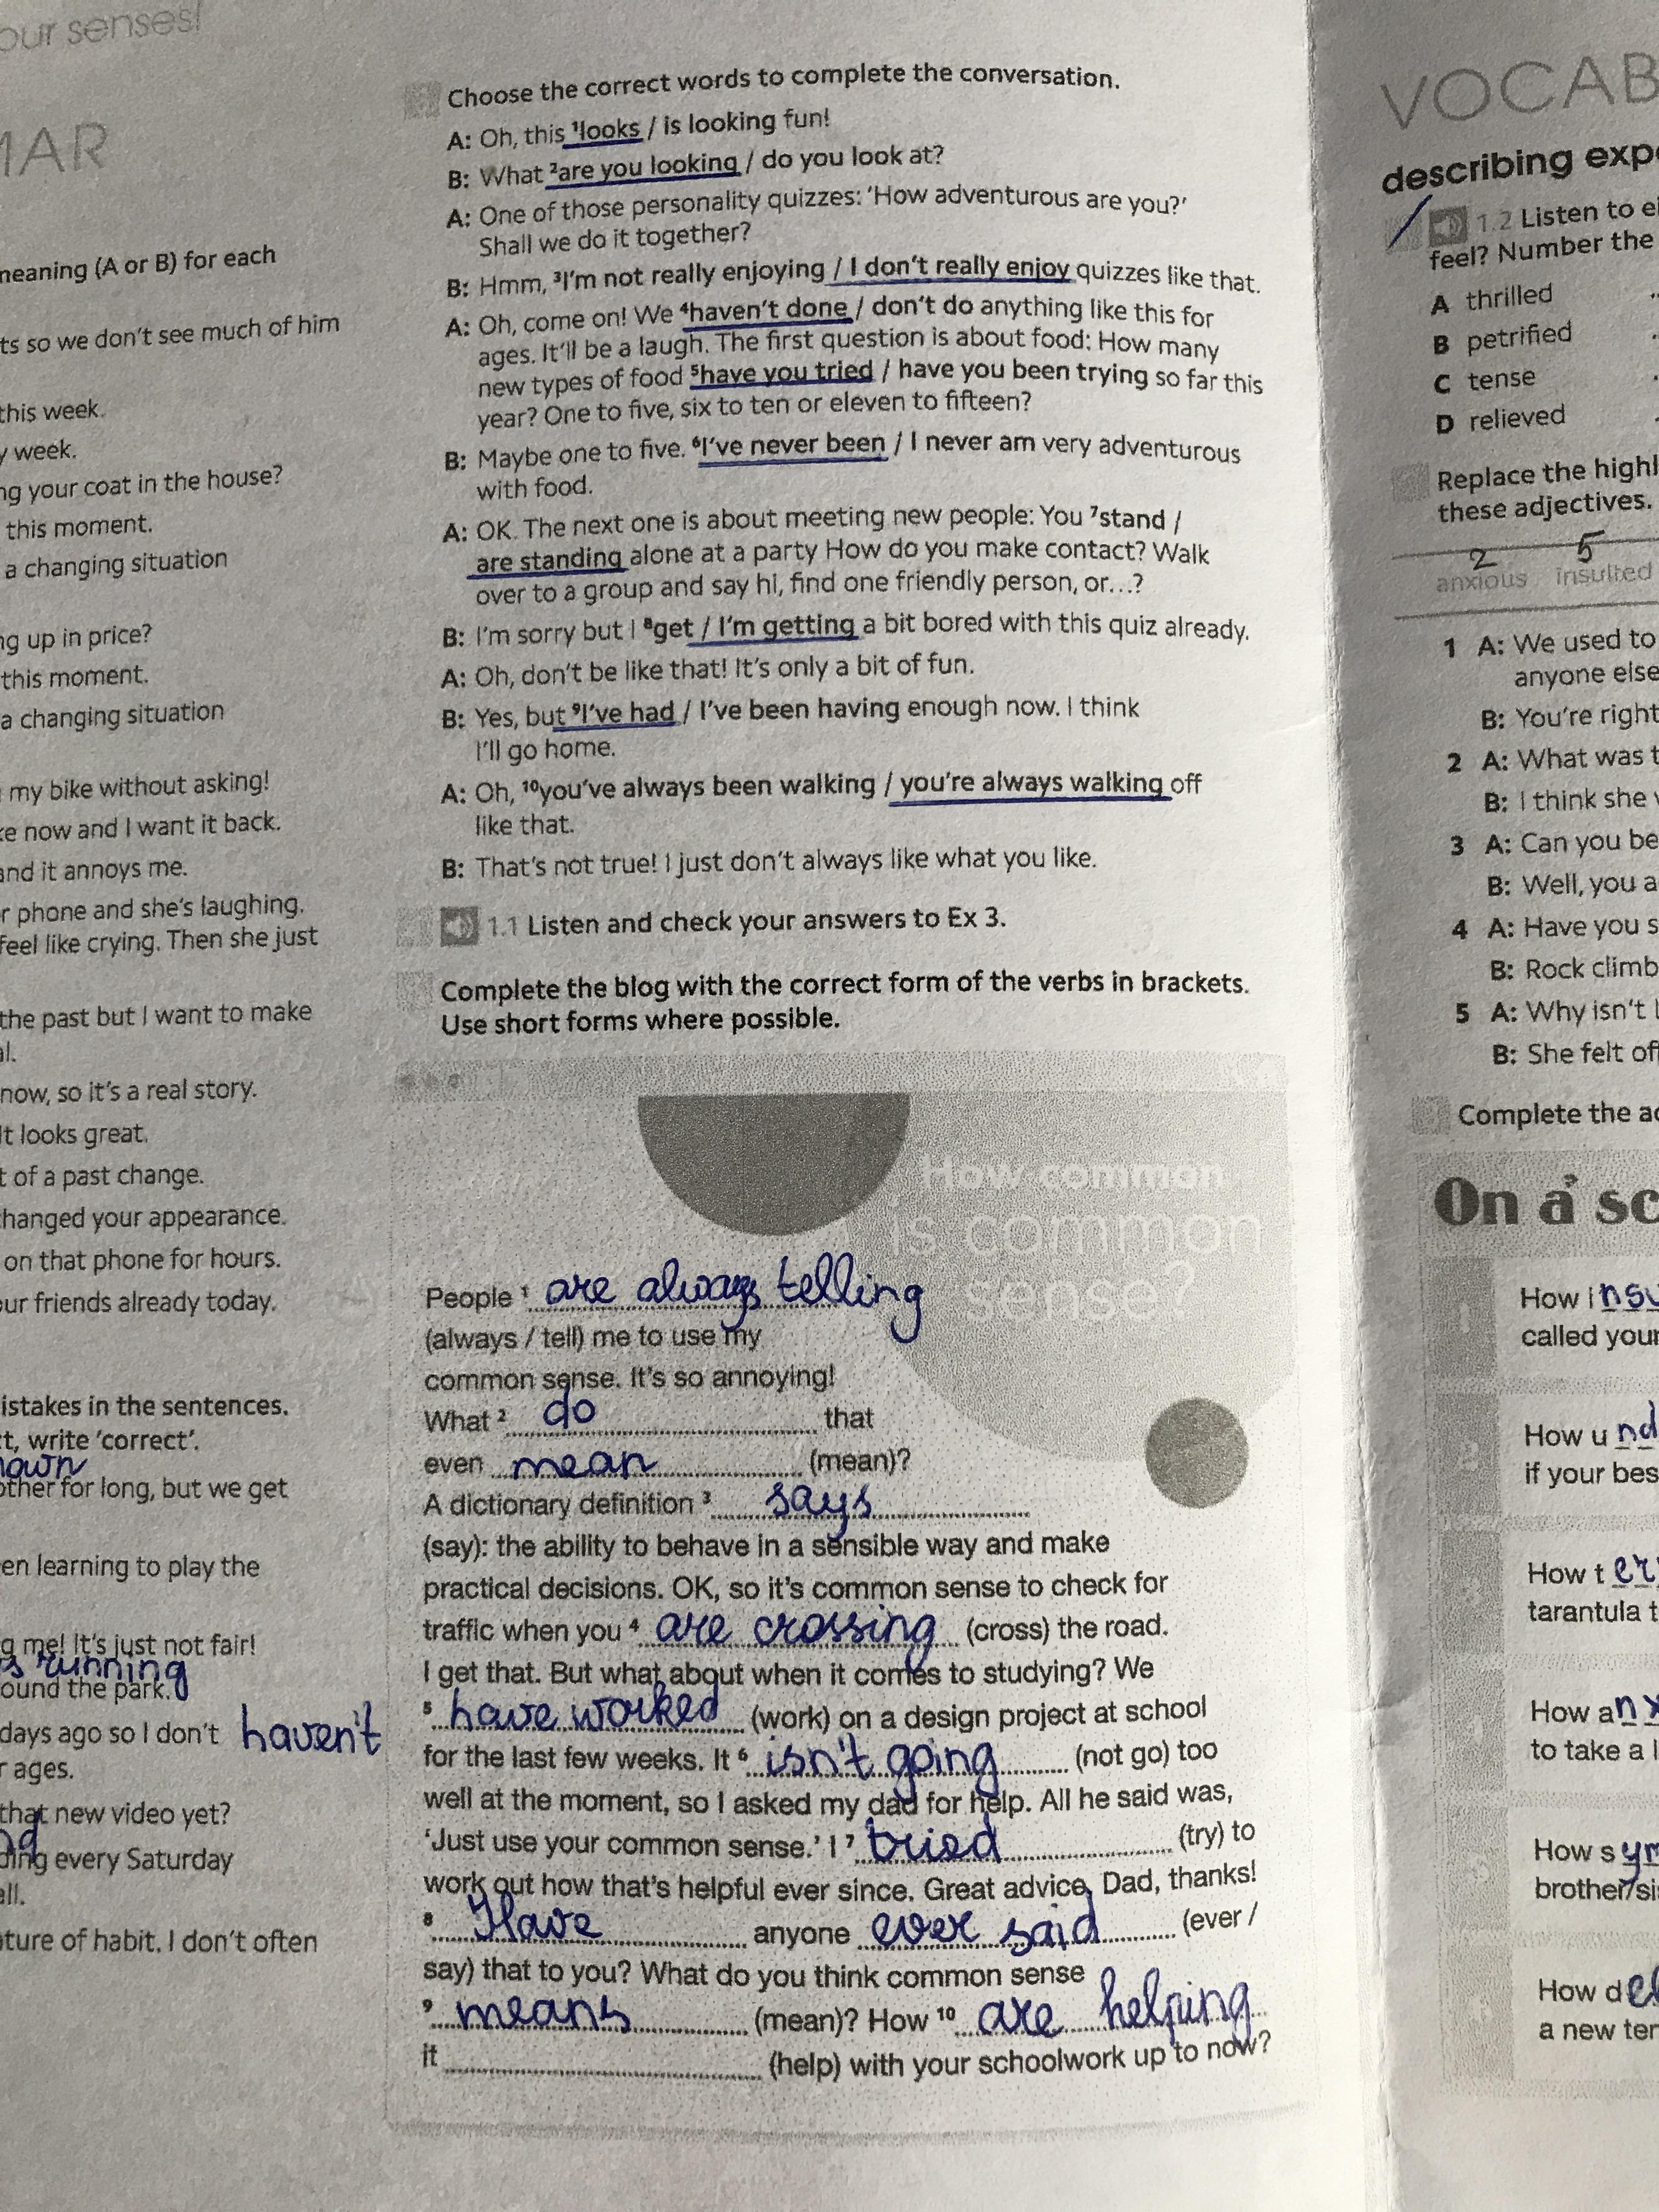 our senses!
MAR
meaning (A or B) for each
ts so we don't see much of him
this week.
y week.
ng your coat in the house?
this moment.
a changing situation
ng up in price?
this moment.
a changing situation
my bike without asking!
ke now and I want it back.
and it annoys me.
r phone and she's laughing.
feel like crying. Then she just
the past but I want to make
al.
now, so it's a real story.
It looks great.
t of a past change.
changed your appearance.
on that phone for hours.
our friends already today.
istakes in the sentences.
t, write 'correct'.
nown
other for long, but we get
en learning to play the
g me! It's just not fair!
is running
ound the park.
days ago so I don't haven't
r ages.
that new video yet?
ding every Saturday
all.
ature of habit. I don't often
Choose the correct words to complete the conversation.
A: Oh, this ¹looks / is looking fun!
B: What ²are you looking / do you look at?
A: One of those personality quizzes: 'How adventurous are you?'
Shall we do it together?
B: Hmm, ³I'm not really enjoying / I don't really enjoy quizzes like that.
A: Oh, come on! We ⁴haven't done / don't do anything like this for
ages. It'll be a laugh. The first question is about food: How many
new types of food ⁵have you tried / have you been trying so far this
year? One to five, six to ten or eleven to fifteen?
B: Maybe one to five. ⁶I've never been / I never am very adventurous
with food.
A: OK. The next one is about meeting new people: You ⁷stand /
are standing alone at a party How do you make contact? Walk
over to a group and say hi, find one friendly person, or...?
B: I'm sorry but I ⁸get / I'm getting a bit bored with this quiz already.
A: Oh, don't be like that! It's only a bit of fun.
B: Yes, but ⁹I've had / I've been having enough now. I think
I'll go home.
A: Oh, ¹⁰you've always been walking / you're always walking off
like that.
B: That's not true! I just don't always like what you like.
1.1 Listen and check your answers to Ex 3.
Complete the blog with the correct form of the verbs in brackets.
Use short forms where possible.
How common
is common
sense?
People ¹ are always telling
(always / tell) me to use my
common sense. It's so annoying!
What ² do that
even mean (mean)?
A dictionary definition ³ says
(say): the ability to behave in a sensible way and make
practical decisions. OK, so it's common sense to check for
traffic when you ⁴ are crossing (cross) the road.
I get that. But what about when it comes to studying? We
⁵ have worked (work) on a design project at school
for the last few weeks. It ⁶ isn't going (not go) too
well at the moment, so I asked my dad for help. All he said was,
'Just use your common sense.' I ⁷ tried (try) to
work out how that's helpful ever since. Great advice, Dad, thanks!
⁸ Have anyone ever said (ever /
say) that to you? What do you think common sense
⁹ means (mean)? How ¹⁰ are helping
it (help) with your schoolwork up to now?
VOCAB
describing exp
1.2 Listen to ei
feel? Number the
A thrilled
B petrified
C tense
D relieved
Replace the highl
these adjectives.
2 5
anxious insulted
1 A: We used to
anyone else
B: You're right
2 A: What was t
B: I think she w
3 A: Can you be
B: Well, you a
4 A: Have you s
B: Rock climb
5 A: Why isn't l
B: She felt off
Complete the ad
On a sc
1
How insu
called your
How und
if your bes
How terr
tarantula t
How anx
to take a l
How sym
brother/si
How del
a new ter